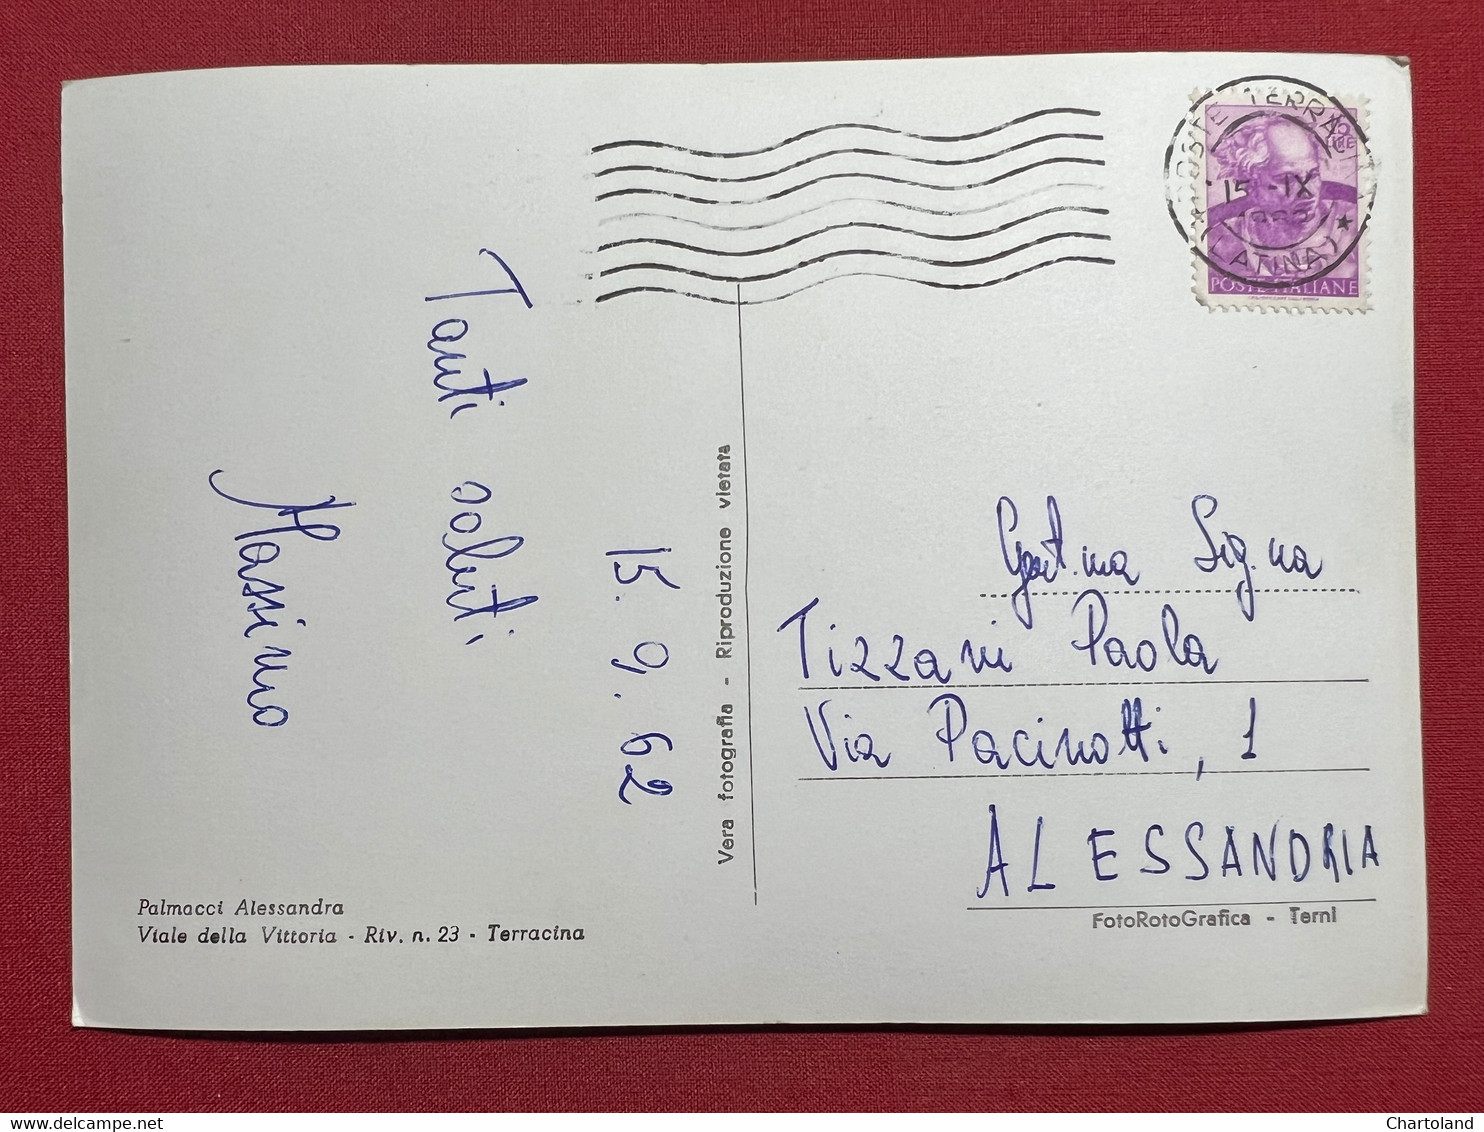 Tanti saluti
Massimo
15. 9. 62
Palmacci Alessandra
Viale della Vittoria - Riv. n. 23 - Terracina
Vera fotografia - Riproduzione vietata
POSTE TERRACINA
15 -IX
(LATINA)
POSTE ITALIANE
Gent.ma Sig.na
Tizzani Paola
Via Pacinotti, 1
ALESSANDRIA
FotoRotoGrafica - Terni
Chartoland